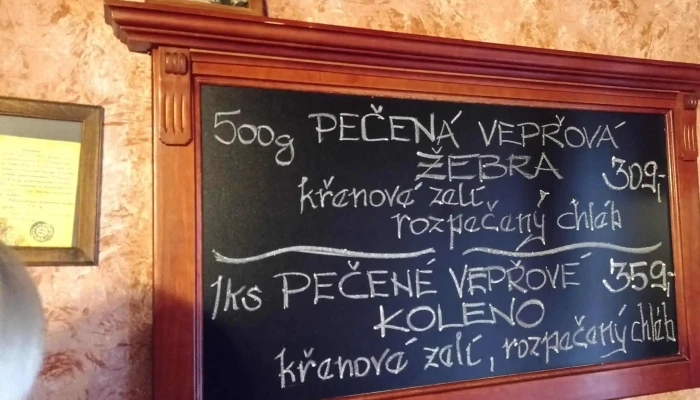 500g PEČENÁ VEPŘOVÁ
ŽEBRA 309,-
křenové zelí
rozpečený chléb
1ks PEČENÉ VEPŘOVÉ 359,-
KOLENO
křenové zelí, rozpečený chléb